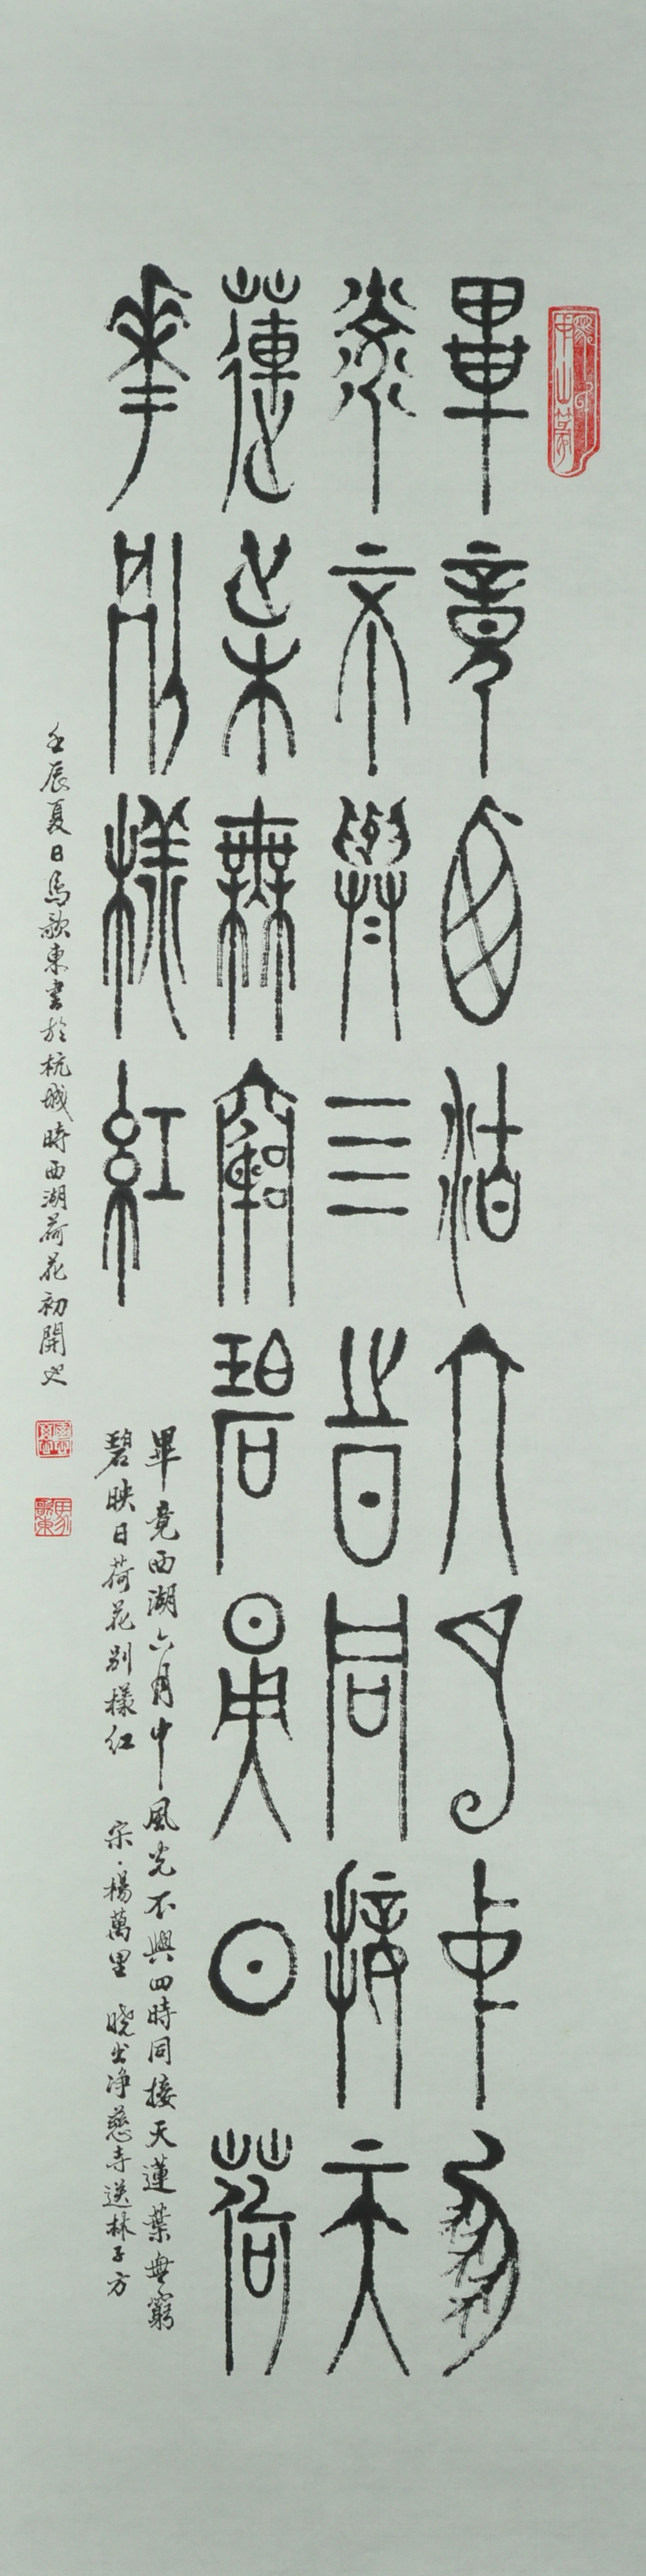 畢竟西湖六月中風
光不與四時同接天
蓮葉無窮碧映日荷
華別樣紅
畢竟西湖六月中風光不與四時同接天蓮葉無窮
碧映日荷花别樣红 宋·楊萬里 晓出净慈寺送林子方
壬辰夏日馬歌東書於杭城時西湖荷花初開也